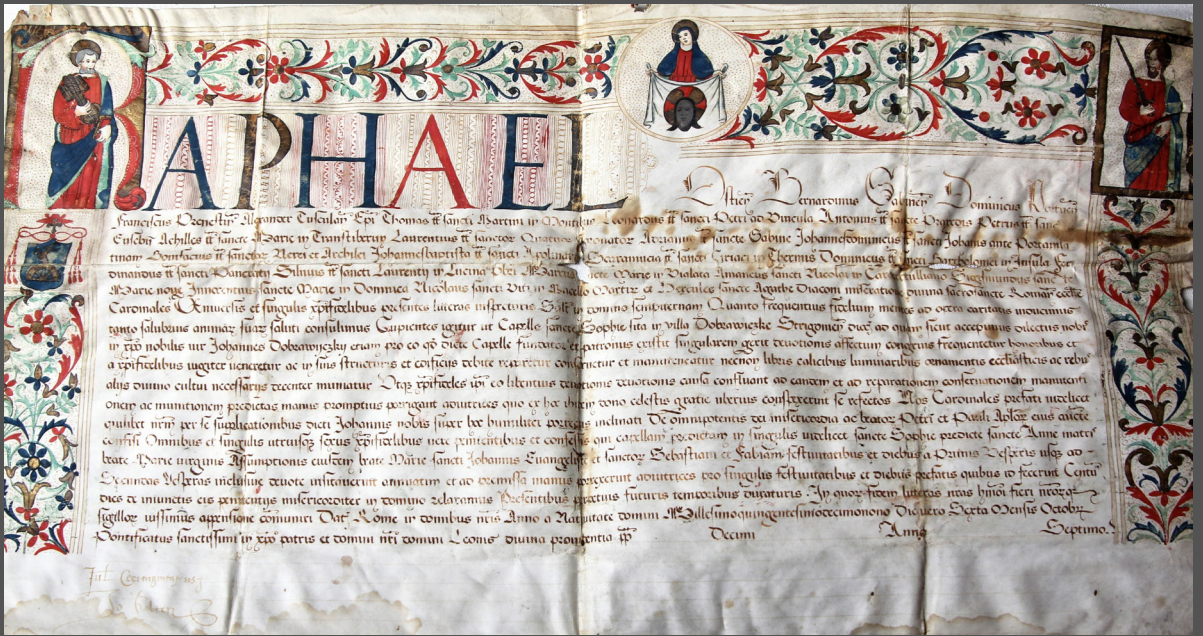 RAPHAEL
Ostien̄ Bernardinus Sabinen̄ Dominicus
Franciscus Alexander Tusculan̄ Ep̄i Thomas tt̄ sancti Martini in Leonardus tt̄ sancti Petri ad Vincula Antonius tt̄ sancte Praxedis Petrus tt̄
Eusebii Achilles tt̄ sancte Marie in Transtiberim Laurentius tt̄ sanctor Quatuor Adrianus sancte Sabine Johannesdominicus sancti Johanis ante Portamla
tinam Bonifacius tt̄ sanctor Nerei et Archilei Johannesbaptista tt̄ sancti Scaramuccia tt̄ sancti Ciriaci in Thermis Dominicus tt̄ sancti Bartholomei in Insula Fer
dinandus tt̄ sancti Pancratii Silvius tt̄ sancti Laurentii in Lucina Marie in Vialata Amaneus sancti Nicolai in Carcere sancte
Marie nove Innocentius sancte Marie in Dominica Nicolaus sancti Viti in Macello Martir et Hercules sancte Agathe Diaconi miseratione divina sacrosancte Roman eccl̄e
Cardinales Universis et singulis xp̄ifidelibus presentes licteras inspecturis Salt̄ in domino sempiternam Quanto frequentius fidelium mentes ad opera caritatis inducimus
tanto salubrius animar suar saluti consulimus Cupientes igitur ut Capella sancte Sophie sita in villa Dobrawiczke Strigonien̄ dioc̄ ad quam sicut accepimus dilectus nobis
in xp̄o nobilis vir Johannes Dobrawiczky etiam pro eo q̄ dicte Capelle fundator et patronus existit singularem gerit devotionis affectum congruis frequentetur honoribus et
a xp̄ifidelibus iugiter veneretur ac in suis structuris et edificiis debite reparetur conservetur et manuteneatur necnon libris calicibus luminaribus ornamentis ecclesiasticis ac rebus
aliis divino cultui necessariis decenter muniatur Utq xp̄ifideles ip̄i eo libentius devotionis causa confluant ad eandem et ad reparationem conservationem manutenti
onem ac munitionem predictas manus promptius porrigant adiutrices quo ex hoc ibidem dono celestis gratie uberius conspexerint se refectos Nos Cardinales prefati videlicet
quilibet nr̄m per se supplicationibus dicti Johannis nobis super hoc humiliter porrectis inclinati De omnipotentis dei misericordia ac beator Petri et Pauli Aplor eius auct̄e
confisi Omnibus et singulis utriusq sexus xp̄ifidelibus vere penitentibus et confessis qui capellam predictam in singulis videlicet sancte Sophie predicte sancte Anne matris
beate Marie virginis Assumptionis eiusdem beate Marie sancti Johannis Evangeliste sanctor Sebastiani et Fabiani festivitatibus et diebus a Primis Vesperis usq ad
Secundas Vesperas inclusive devote visitaverint annuatim et ad premissa manus porrexerint adiutrices pro singulis festivitatibus et diebus prefatis quibus id fecerint Centū
dies de iniunctis eis penitentiis misericorditer in domino relaxamus Presentibus perpetuis futuris temporibus duraturis In quor fidem literas nr̄as hmōi fieri nr̄orq
sigillor iussimus appensione cōmuniri Dat̄ Rome in domibus nr̄is Anno a Nativitate domini Millesimoquingentesimodecimonono Die vero Sexta Mensis Octobr̄
Pontificatus sanctissimi in xp̄o patris et domini nr̄i domini Leonis divina providentia pp̄ Decimi Anno Septimo